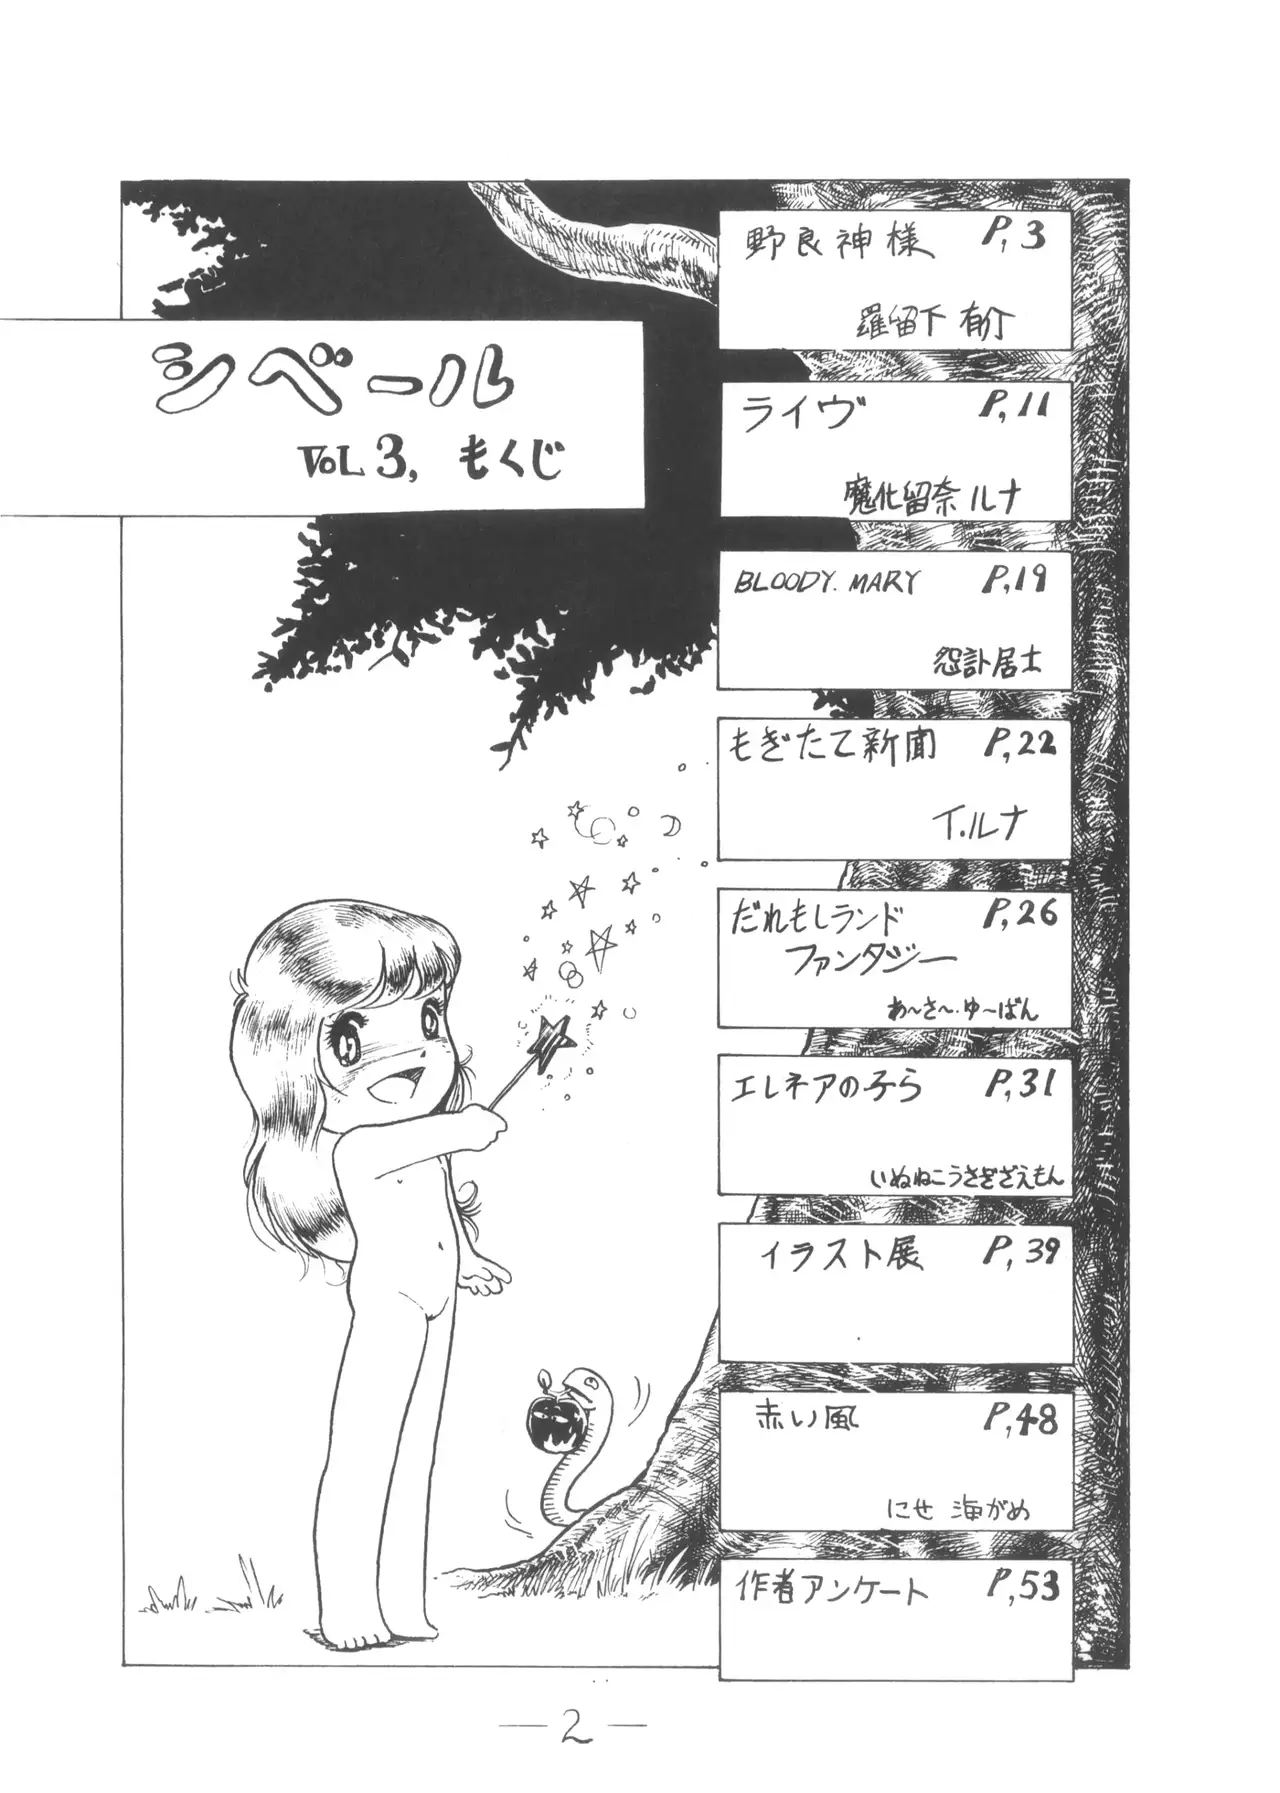 シベール
VOL 3, もくじ
野良神様 P,3
羅留下 有介
ライヴ P,11
魔化留奈 ルナ
BLOODY. MARY P,19
怨訃居士
もぎたて新聞 P,22
イ.ルナ
だれもしランド P,26
ファンタジー
あ〜さ〜・ゆ〜ばん
エレネアの子ら P,31
いぬねこうさぎざえもん
イラスト展 P,39
赤い風 P,48
にせ 海がめ
作者アンケート P,53
— 2 —